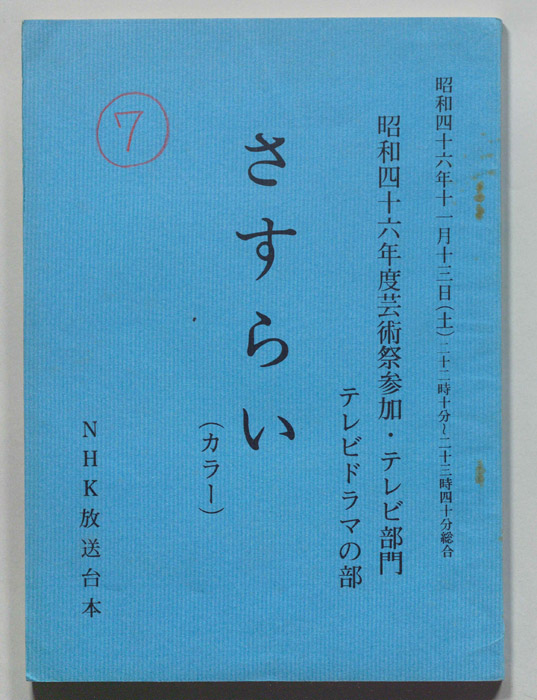 昭和四十六年十一月十三日(土)二十二時十分~二十三時四十分総合
昭和四十六年度芸術祭参加・テレビ部門
テレビドラマの部
さすらい
(カラー)
NHK放送台本
7